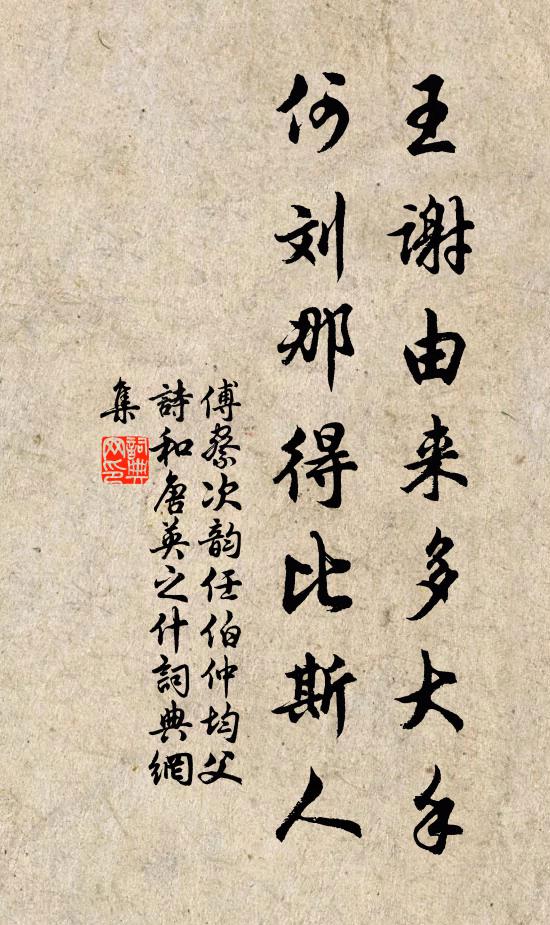 王谢由来多大手
何刘那得比斯人
傅察次韵任伯仲均父
詩和唐英之什詞典網
集
詞典網印